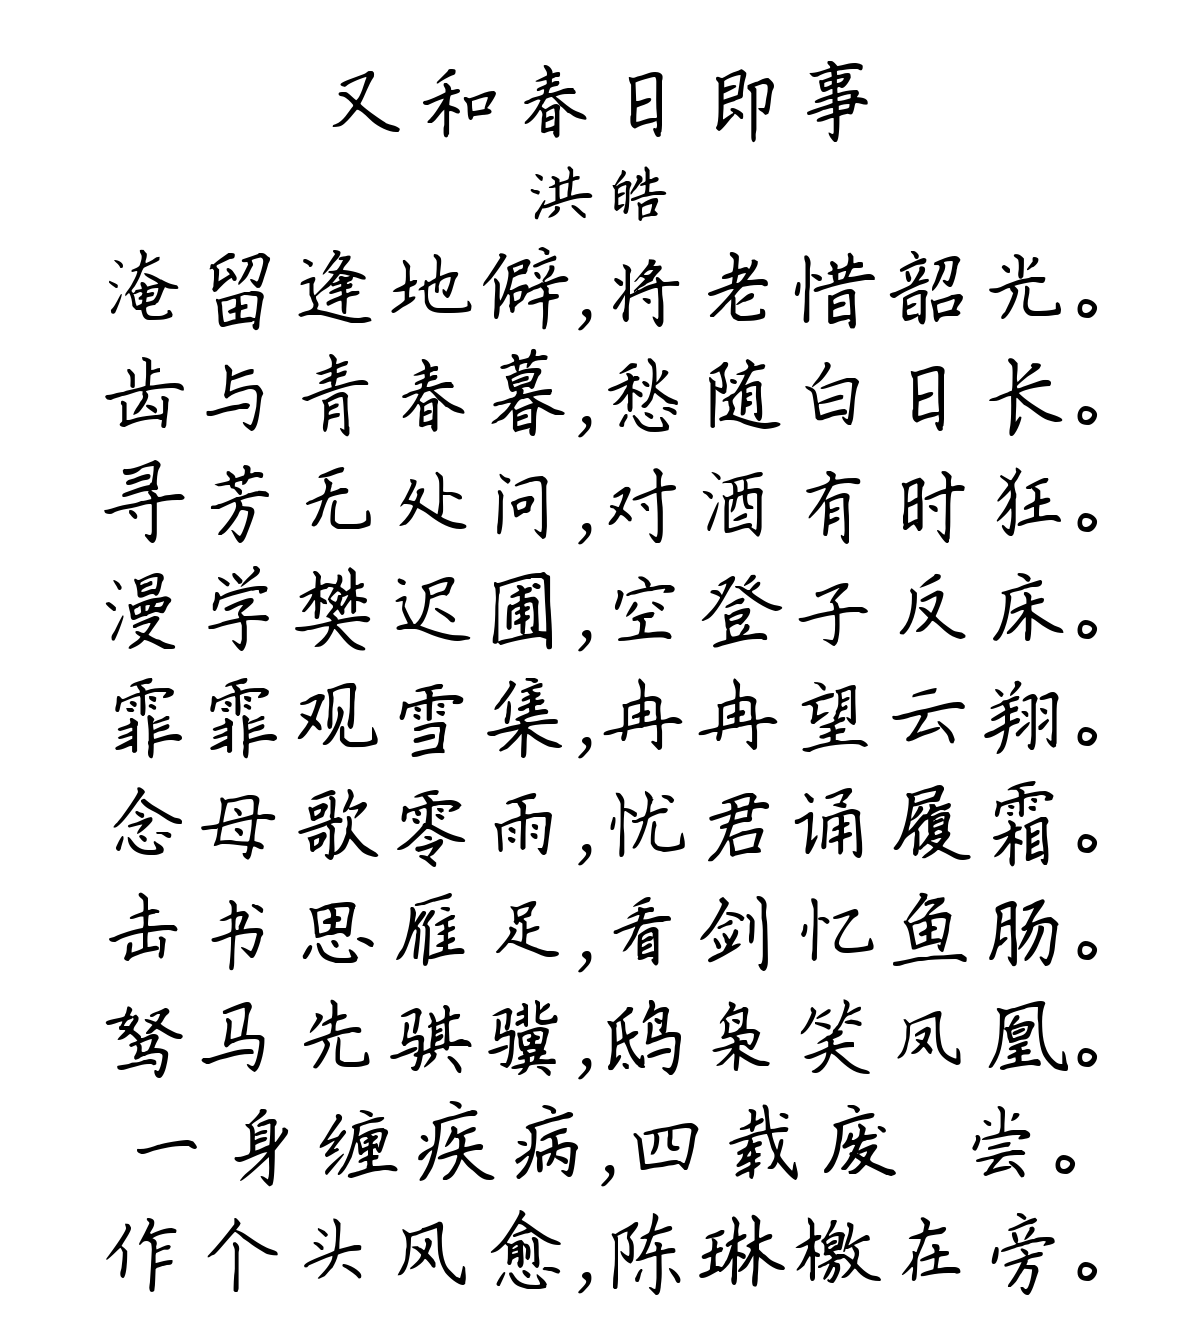 又和春日即事
洪皓
淹留逢地僻,将老惜韶光。
齿与青春暮,愁随白日长。
寻芳无处问,对酒有时狂。
漫学樊迟圃,空登子反床。
霏霏观雪集,冉冉望云翔。
念母歌零雨,忧君诵履霜。
击书思雁足,看剑忆鱼肠。
驽马先骐骥,鸱枭笑凤凰。
一身缠疾病,四载废 尝。
作个头风愈,陈琳檄在旁。